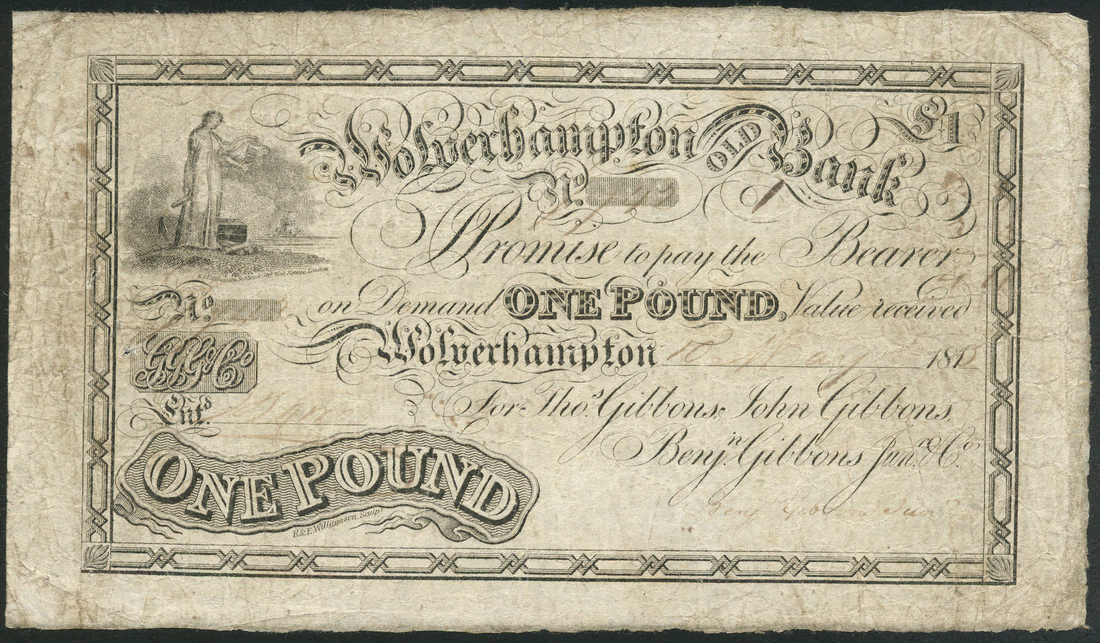 Wolverhampton OLD Bank £1
No.
I Promise to pay the Bearer
No. on Demand ONE POUND, Value received
Wolverhampton 181
GG&Co
Entd. For Thos. Gibbons, John Gibbons,
Benjn. Gibbons Junr. & Co.
ONE POUND
R & E. Williamson, Sculpt.